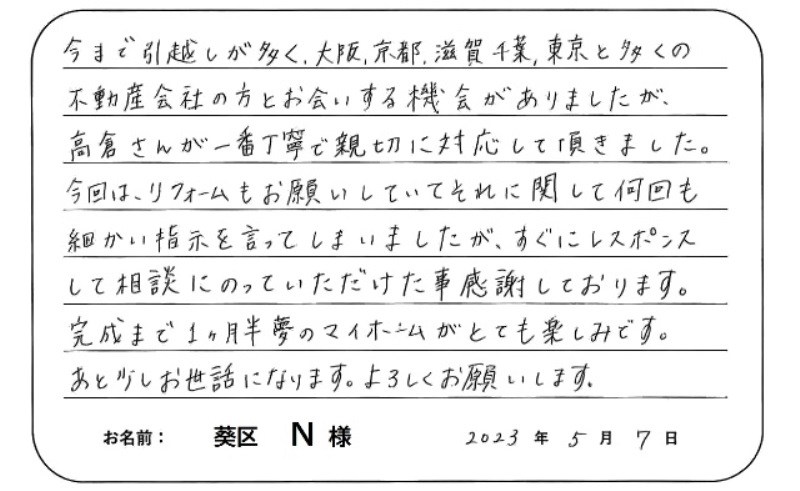 今まで引越しが多く、大阪,京都,滋賀千葉,東京と多くの
不動産会社の方とお会いする機会がありましたが、
高倉さんが一番丁寧で親切に対応して頂きました。
今回は、リフォームもお願いしていてそれに関して何回も
細かい指示を言ってしまいましたが、すぐにレスポンス
して相談にのっていただけた事感謝しております。
完成まで1ヶ月半夢のマイホームがとても楽しみです。
あと少しお世話になります。よろしくお願いします。
お名前： 葵区 N 様 2023 年 5 月 7 日